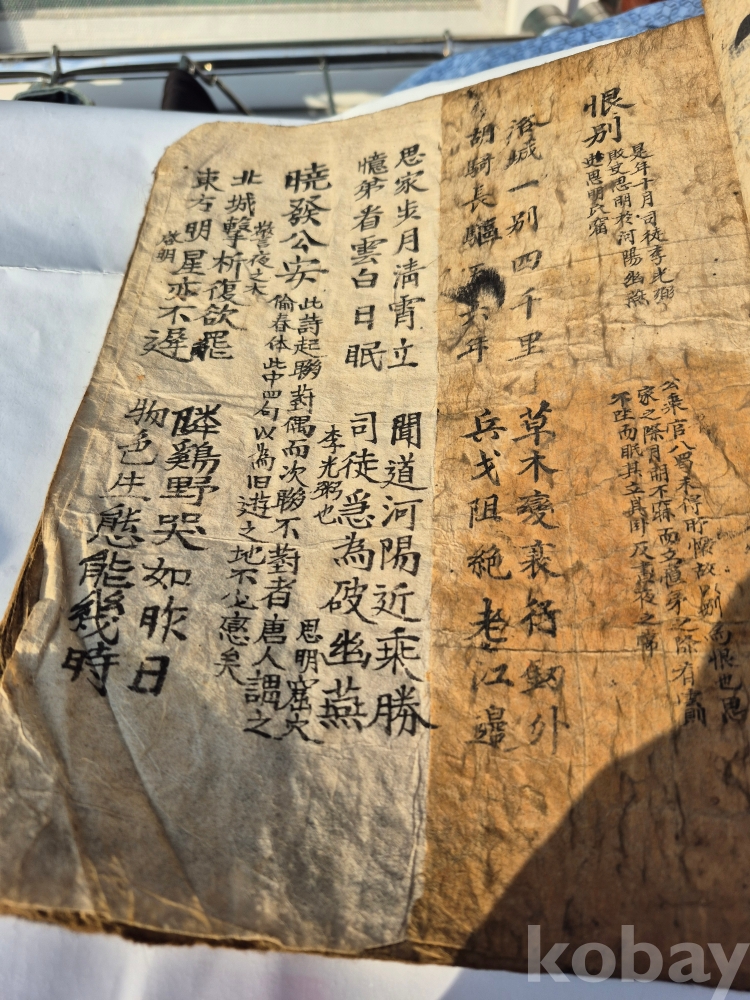 恨別
是年十月司徒李光弼
敗史思明於河陽幽燕
思明
公棄官入蜀未得所懷故以別為恨也思
家之際月明不寐而立憶弟之際看
不坐而眠其立其困反晝夜之常
洛城一別四千里 草木變衰行劒外
胡騎長驅五六年 兵戈阻絶老江邊
思家步月清宵立 聞道河陽近乘勝
憶弟看雲白日眠 司徒急為破幽燕
李光弼也 思明窟穴
曉發公安 此詩起聯對偶而次聯不對者唐人謂之
偷春体此中四句以為旧遊之地不必矣
警夜之木
北城擊柝復欲罷 隣鷄野哭如昨日
東方明星亦不遲 物色生態能幾時
啓明
kobay